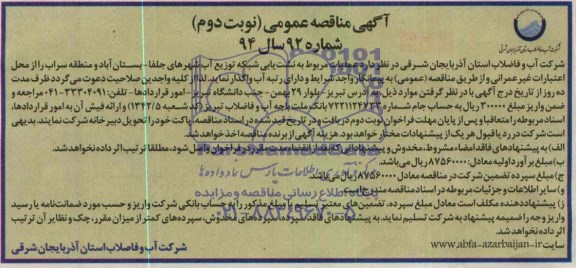 آگهی مناقصه عمومی (نوبت دوم)
شماره ۹۲ سال ۹۴
شرکت آب و فاضلاب استان آذربایجان شرقی در نظر دارد عملیات مربوط به نشت یابی شبکه توزیع آب شهرهای جلفا- بستان آباد و منطقه سراب را از محل
اعتبارات غیر عمرانی و از طریق مناقصه (عمومی) به پیمانکار واجد شرایط و دارای رتبه آب واگذار نماید. لذا از کلیه واجدین صلاحیت دعوت می گردد ظرف مدت
ده روز از تاریخ درج آگهی با در نظر گرفتن موارد ذیل به آدرس تبریز- بلوار ۲۹ بهمن - جنب دانشگاه تبریز - امور قراردادها - تلفن: ۳۳۳۰۴۰۹۱-۰۴۱ مراجعه و
ضمن واریز مبلغ ۳۰۰۰۰۰ ریال به حساب جام شماره ۷۲۲۱۱۲۴۷۳۳ بانک ملت باجه آب و فاضلاب تبریز (کد شعبه ۱۳۴۲/۵) و ارائه فیش آن به امور قراردادها،
اسناد مربوطه را متعاقبا و پس از پایان مهلت فراخوان نوبت دوم دریافت و در تاریخ قید شده در اسناد مناقصه پاکت خود را تحویل دبیرخانه شرکت نمایند. بدیهی
است شرکت در رد یا قبول هر یک از پیشنهادات مختار خواهد بود. هزینه آگهی از برنده مناقصه اخذ خواهد شد.
الف) به پیشنهادهای فاقد امضاء مشروط، مخدوش و پیشنهاداتی که بعد از انقضاء مدت مقرر در فراخوان واصل شود، مطلقا ترتیب اثر داده نخواهد شد.
ب) مبلغ برآورد اولیه معادل: ۸۷۵۶۰۰۰۰۰ ریال می باشد.
ج) مبلغ سپرده تضمین شرکت در مناقصه معادل ۸۷۵۶۰۰۰۰ ریال می باشد.
و) سایر اطلاعات و جزئیات مربوطه در اسناد مناقصه مندرج است.
ز) پیشنهاد دهنده مکلف است معادل مبلغ سپرده، تضمین های معتبر تسلیم یا مبلغ مذکور را به حساب بانکی شرکت واریز و حسب مورد ضمانت نامه یا رسید
واریز وجه را ضمیمه پیشنهاد به شرکت تسلیم نماید. به پیشنهادهای فاقد سپرده، سپرده های مخدوش، سپرده های کمتر از میزان مقرر، چک و نظایر آن ترتیب
اثر داده نخواهد شد.
سایت www.abfa-azarbaijan-ir
شرکت آب و فاضلاب استان آذربایجان شرقی